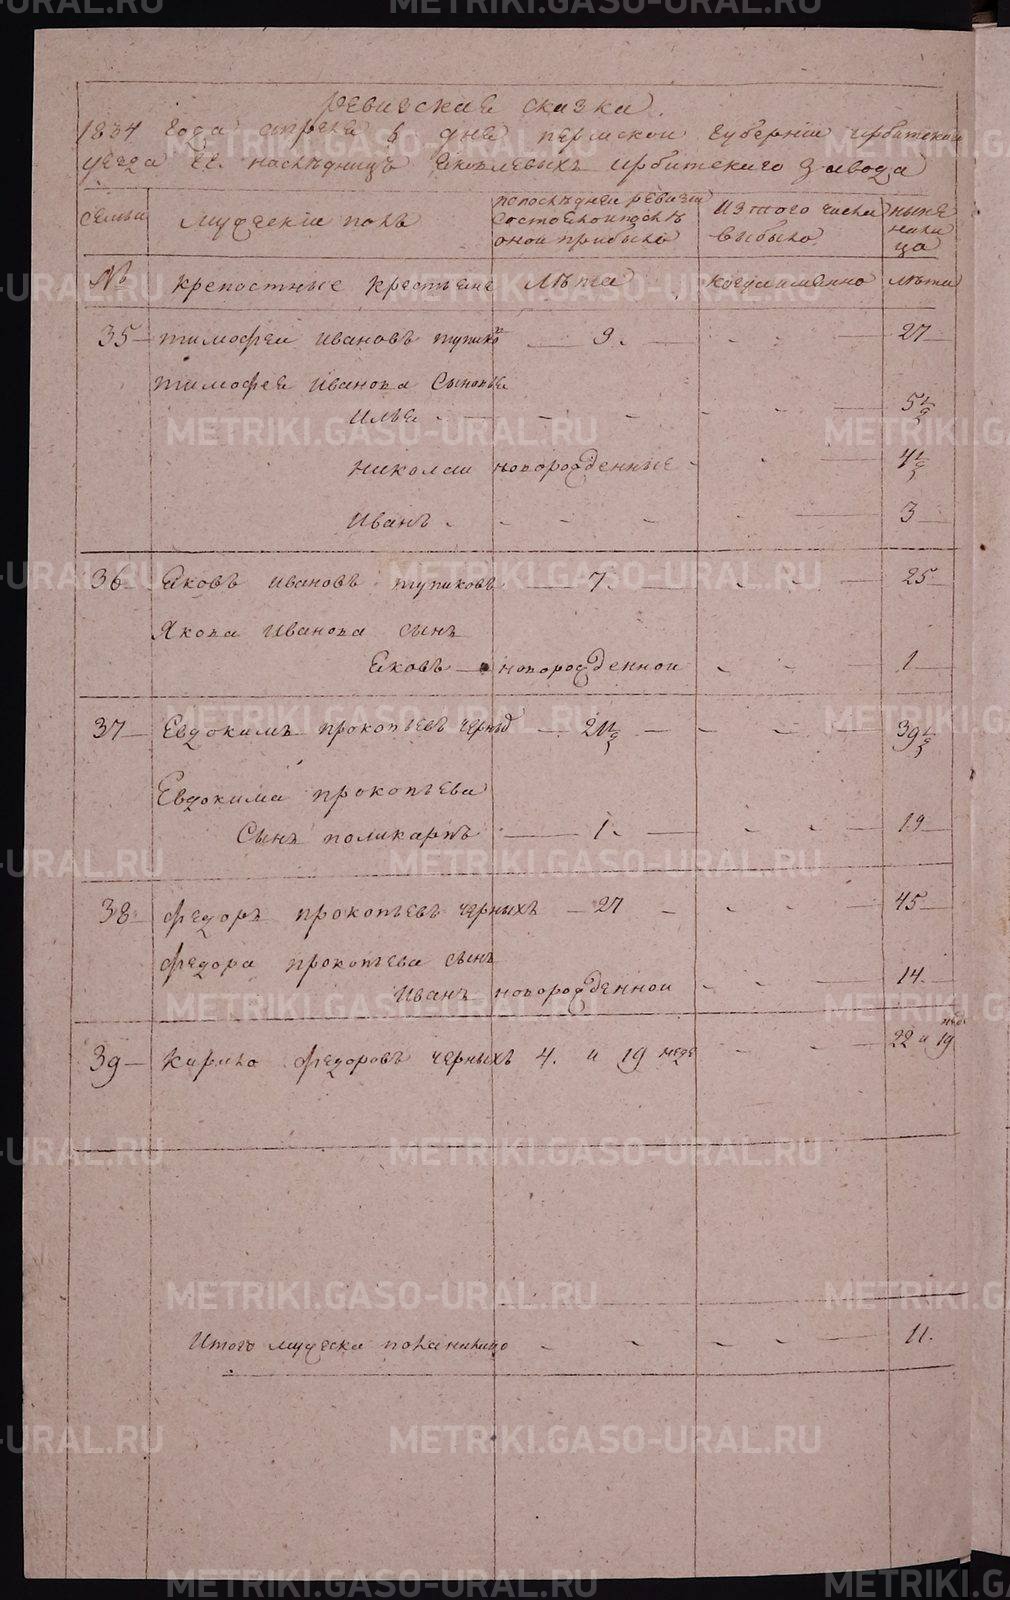 Ревизская сказка.
1834 года апреля в дня Пермской губернии Ирбитской
уезда гг. наследниц Яковлевых Ирбитского завода
семьи
Мужескiе полъ
по последней ревизи состоялои после оной прибыло
Из того числа выбыло
ныне налица
№
крепостные крестьяне
Лѣта
когда именно
лѣта
35 Тимофеи Ивановъ Тупико 9. 27
Тимофея Иванова сыновье
Илья - 5 1/2
Николаи новорожденные 4 1/2
Иванъ - 3
36 Яковъ Ивановъ Тупиковъ 7. 25
Якова Иванова сынъ
Яковъ новорожденнои 1
37 Евдокимъ Прокопьевъ Черных 21 1/2 39 1/2
Евдокима Прокопьева
Сынъ Поликарпъ 1. 19
38 Федоръ Прокопьевъ Черныхъ 27 45
Федора Прокопьева сынъ
Иванъ новорожденнои 14.
39 Кирило Федоровъ Черныхъ 4. и 19 неде 22 и 19 неде
Итого мужеска пола налицо 11.
METRIKI.GASO-URAL.RU